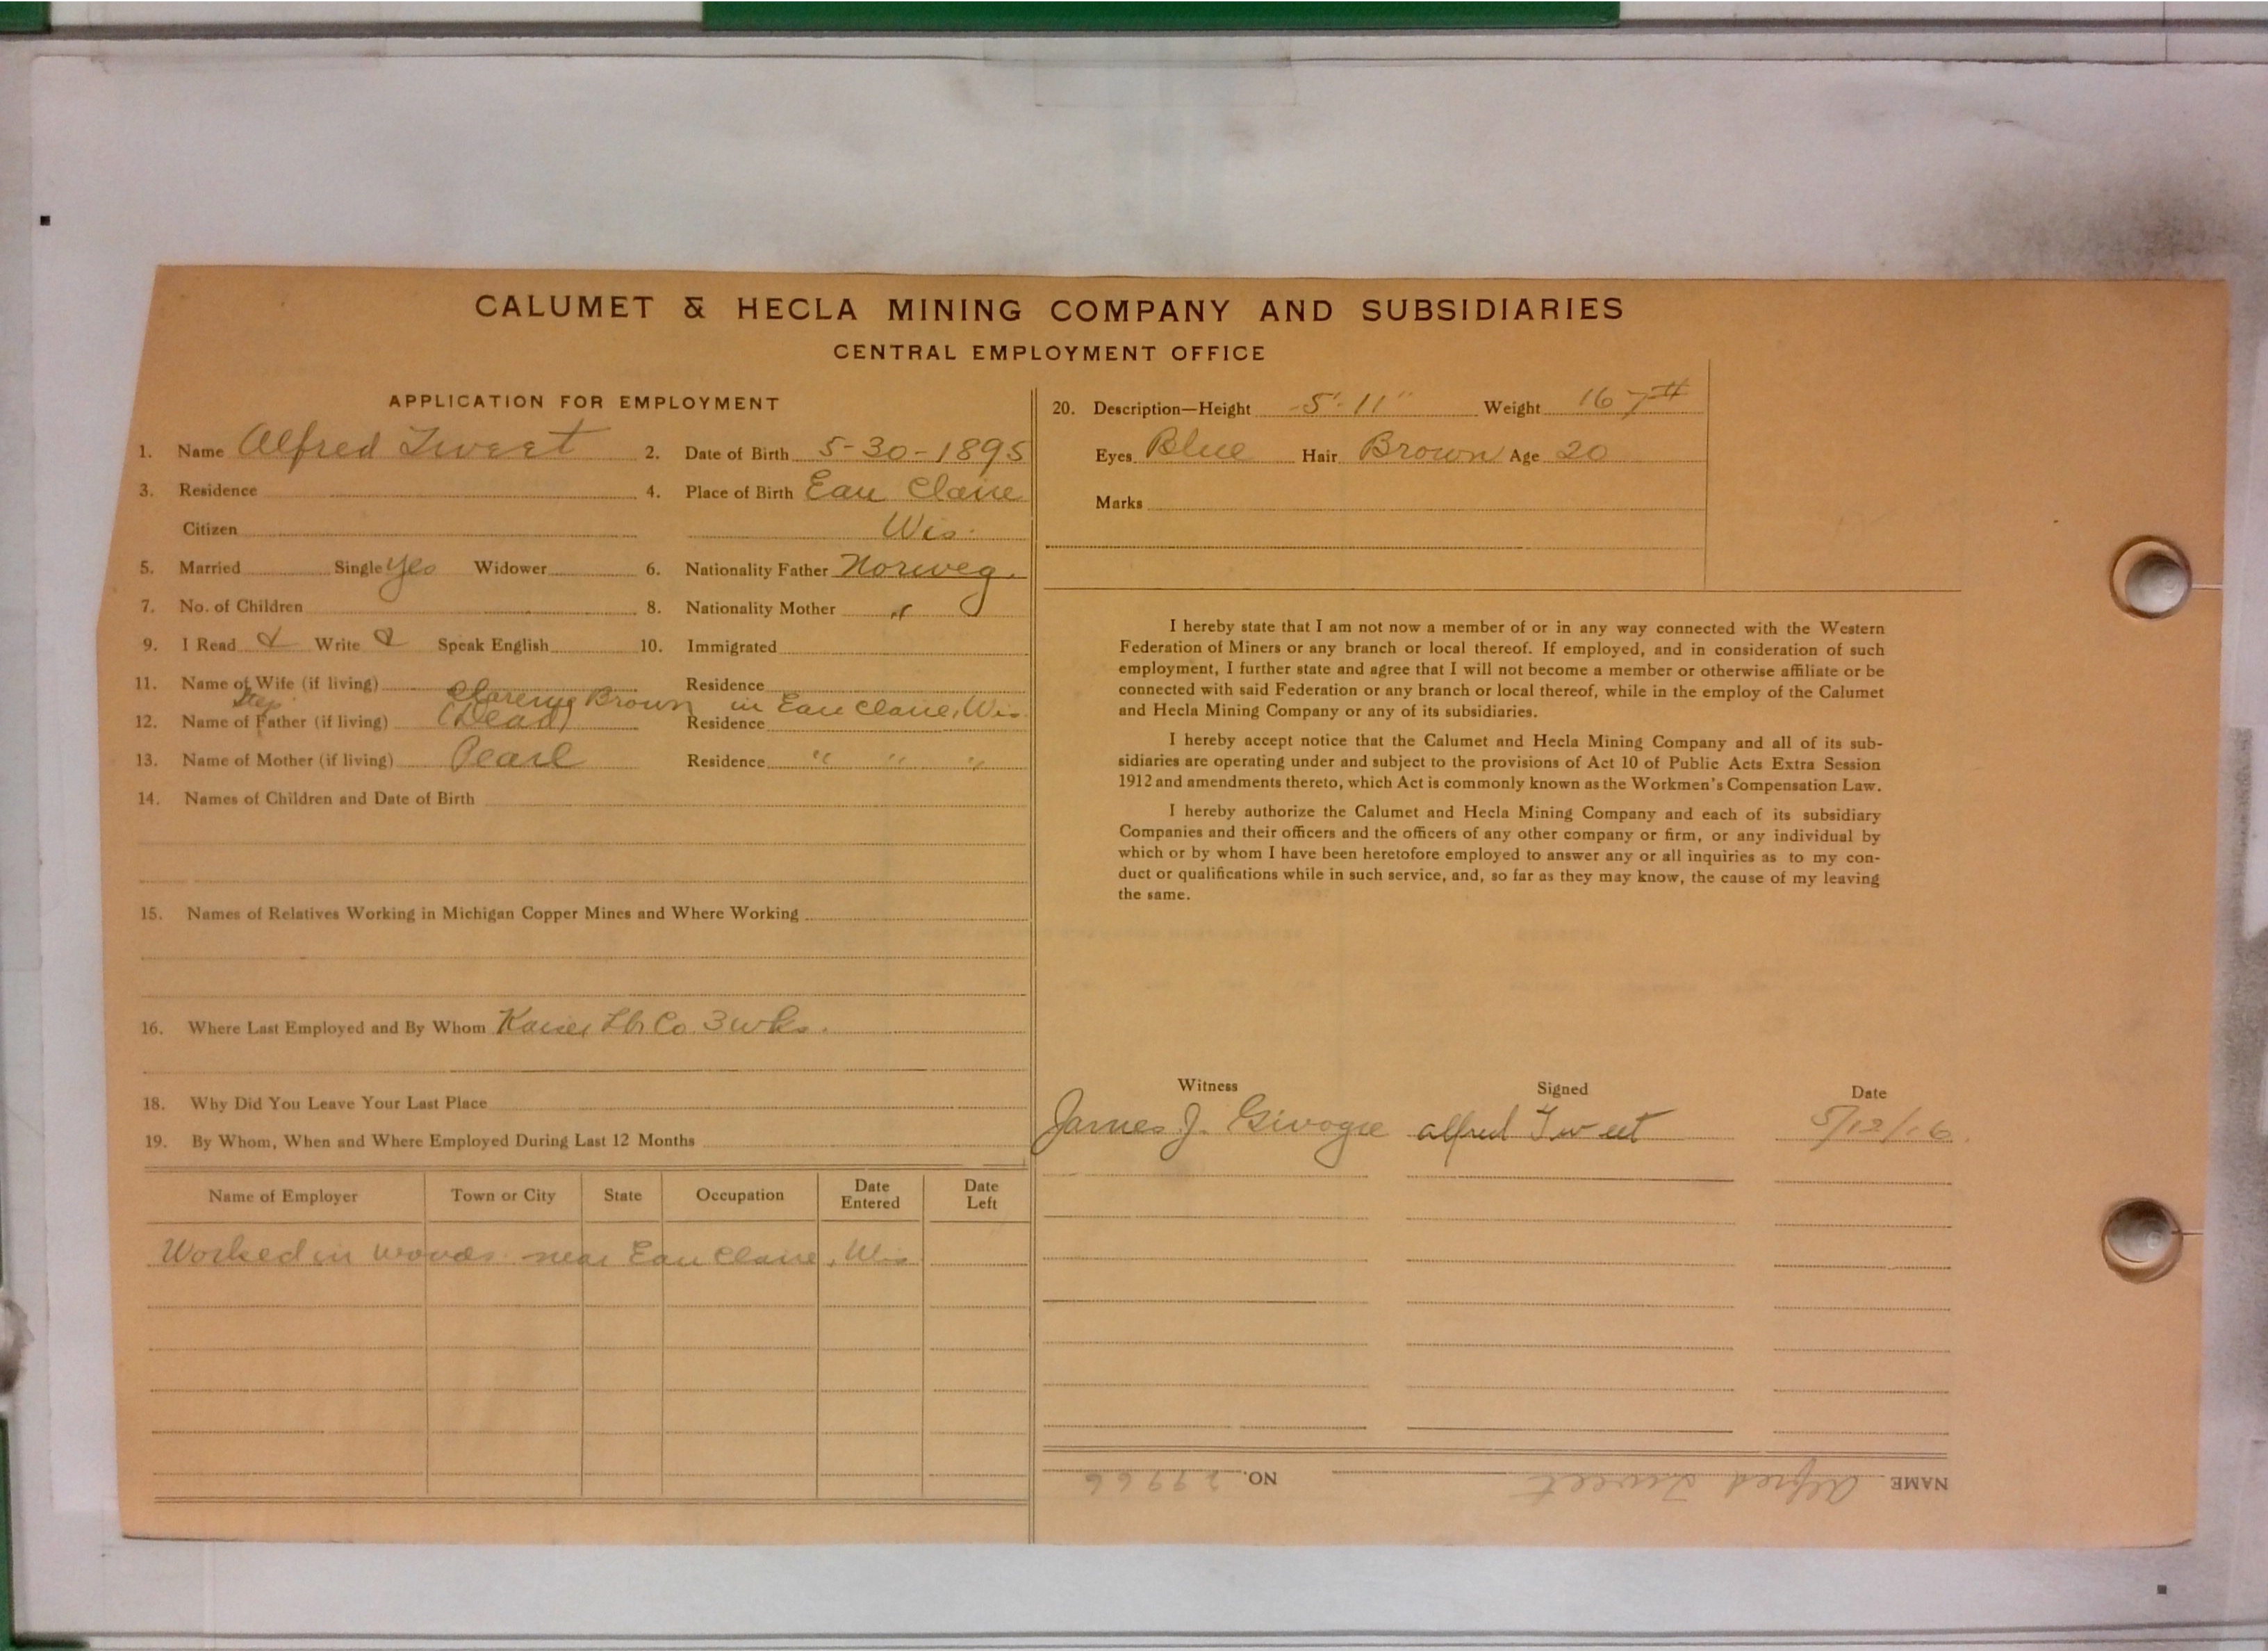 CALUMET & HECLA MINING COMPANY AND SUBSIDIARIES
CENTRAL EMPLOYMENT OFFICE
APPLICATION FOR EMPLOYMENT
1. Name Alfred Tweet 2. Date of Birth 5-30-1895
3. Residence 4. Place of Birth Eau Claire
Citizen Wis.
5. Married Single Yes Widower 6. Nationality Father Norweg.
7. No. of Children 8. Nationality Mother "
9. I Read & Write & Speak English 10. Immigrated
11. Name of Wife (if living) Residence
Step Clarence Brown in Eau Claire, Wis
12. Name of Father (if living) (Dead) Residence
13. Name of Mother (if living) Pearl Residence " " "
14. Names of Children and Date of Birth
15. Names of Relatives Working in Michigan Copper Mines and Where Working
16. Where Last Employed and By Whom Kaiser Lbr Co. 3 wks.
18. Why Did You Leave Your Last Place
19. By Whom, When and Where Employed During Last 12 Months
Name of Employer Town or City State Occupation Date Entered Date Left
Worked in woods near Eau Claire, Wis
20. Description—Height 5'-11" Weight 167#
Eyes Blue Hair Brown Age 20
Marks
I hereby state that I am not now a member of or in any way connected with the Western
Federation of Miners or any branch or local thereof. If employed, and in consideration of such
employment, I further state and agree that I will not become a member or otherwise affiliate or be
connected with said Federation or any branch or local thereof, while in the employ of the Calumet
and Hecla Mining Company or any of its subsidiaries.
I hereby accept notice that the Calumet and Hecla Mining Company and all of its sub-
sidiaries are operating under and subject to the provisions of Act 10 of Public Acts Extra Session
1912 and amendments thereto, which Act is commonly known as the Workmen's Compensation Law.
I hereby authorize the Calumet and Hecla Mining Company and each of its subsidiary
Companies and their officers and the officers of any other company or firm, or any individual by
which or by whom I have been heretofore employed to answer any or all inquiries as to my con-
duct or qualifications while in such service, and, so far as they may know, the cause of my leaving
the same.
Witness Signed Date
James J. Givogre Alfred Tweet 5/12/16.
NAME Alfred Tweet NO. 29966